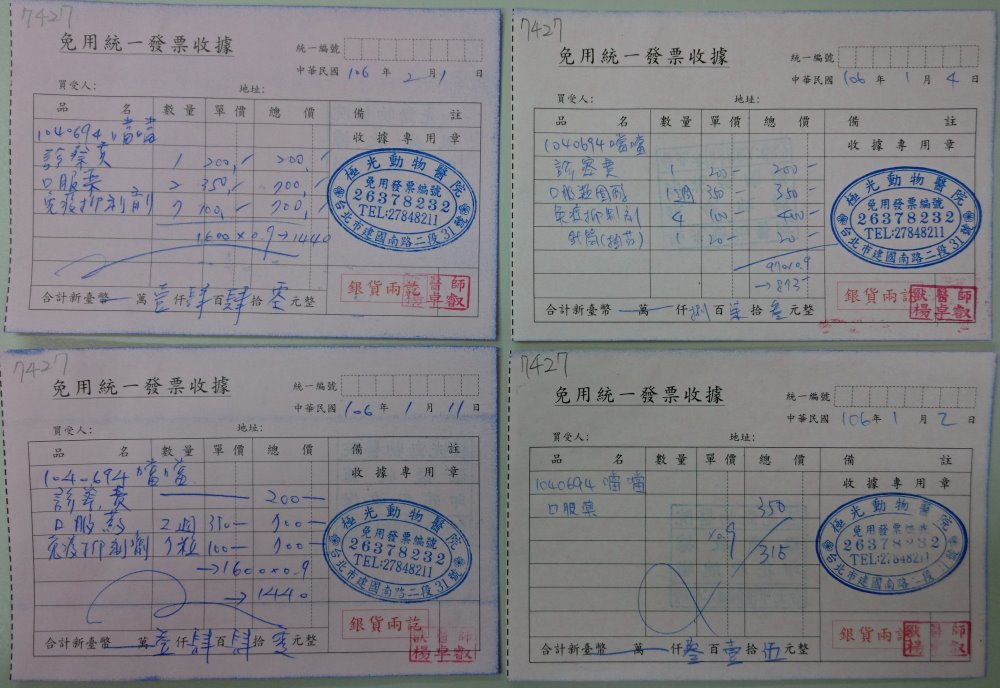 7427
免用統一發票收據
統一編號
中華民國 106 年 2 月 1 日
買受人: 地址:
品名 數量 單價 總價 備註
1040694 噹噹 收據專用章
診察費 1 200.- 200.-
口服藥 2 350- 700.-
免疫抑制劑 7 100.- 700.-
1600×0.9→1440
極光動物醫院
免用發票編號
26378232
TEL:27848211
台北市建國南路二段31號
銀貨兩訖
獸醫師
楊卓叡
合計新臺幣 萬壹仟肆百肆拾零元整
7427
免用統一發票收據
統一編號
中華民國 106 年 1 月 4 日
買受人: 地址:
品名 數量 單價 總價 備註
1040694 噹噹 收據專用章
診察費 1 200- 200-
1週 350 350-
免疫抑制劑 4 100- 400-
針筒 1 20- 20-
970×0.9
→873-
極光動物醫院
免用發票編號
26378232
TEL:27848211
台北市建國南路二段31號
銀貨兩訖
獸醫師
楊卓叡
合計新臺幣 萬 仟捌百柒拾叁元整
7427
免用統一發票收據
統一編號
中華民國 106 年 1 月 11 日
買受人: 地址:
品名 數量 單價 總價 備註
1040694 噹噹 收據專用章
診察費 200-
口服藥 2週 350- 700-
免疫抑制劑 7粒 100- 700-
→1600×0.9
→1440
極光動物醫院
免用發票編號
26378232
TEL:27848211
台北市建國南路二段31號
銀貨兩訖
獸醫師
楊卓叡
合計新臺幣 萬壹仟肆百肆拾零元整
7427
免用統一發票收據
統一編號
中華民國 106 年 1 月 2 日
買受人: 地址:
品名 數量 單價 總價 備註
1040694 噹噹 收據專用章
口服藥 350
×0.9 315
極光動物醫院
免用發票編號
26378232
TEL:27848211
台北市建國南路二段31號
銀貨兩訖
獸醫師
楊卓叡
合計新臺幣 萬 仟叁百壹拾伍元整